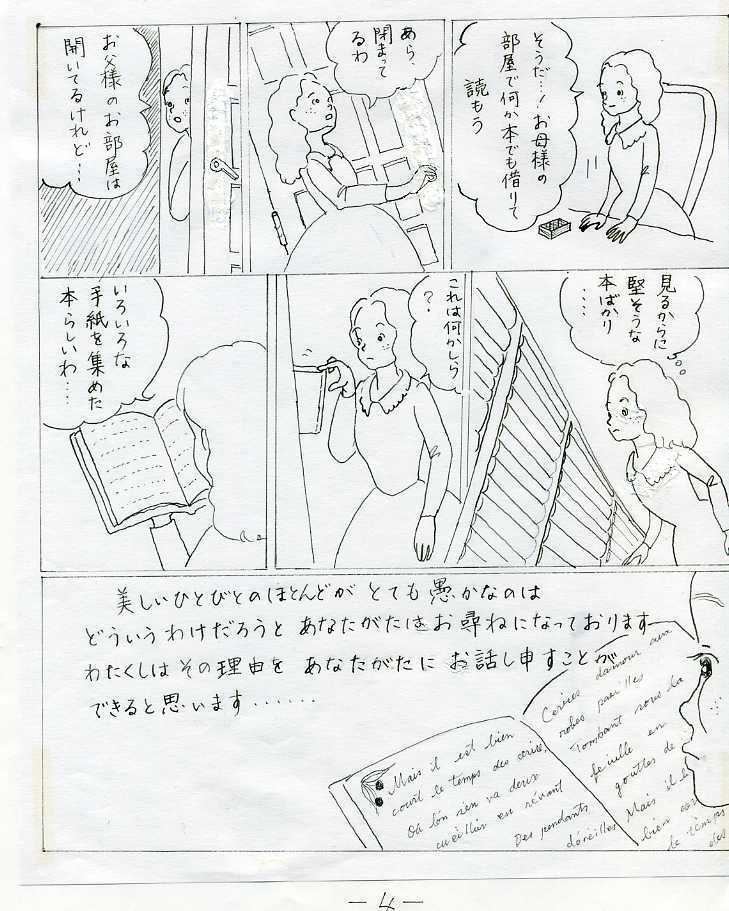 そうだ…！お母様の
部屋で何か本でも借りて
読もう
あら、
閉まって
るわ
お父様のお部屋は
開いてるけれど…
見るからに
堅そうな
本ばかり
……
これは何かしら
？
いろいろな
手紙を集めた
本らしいわ……
美しいひとびとのほとんどが とても愚かなのは
どういうわけだろうと あなたがたはお尋ねになっております
わたくしはその理由を あなたがたに お話し申すことが
できると思います……
Mais il est bien
court le temps des cerise,
Où l'on s'en va deux
cueillir en rêvant
Des pendants d'oreilles
Cerises d'amour aux
robes pareilles
Tombant sous la
feuille en
gouttes de
Mais il e
bien cour
le temps
des
－4－